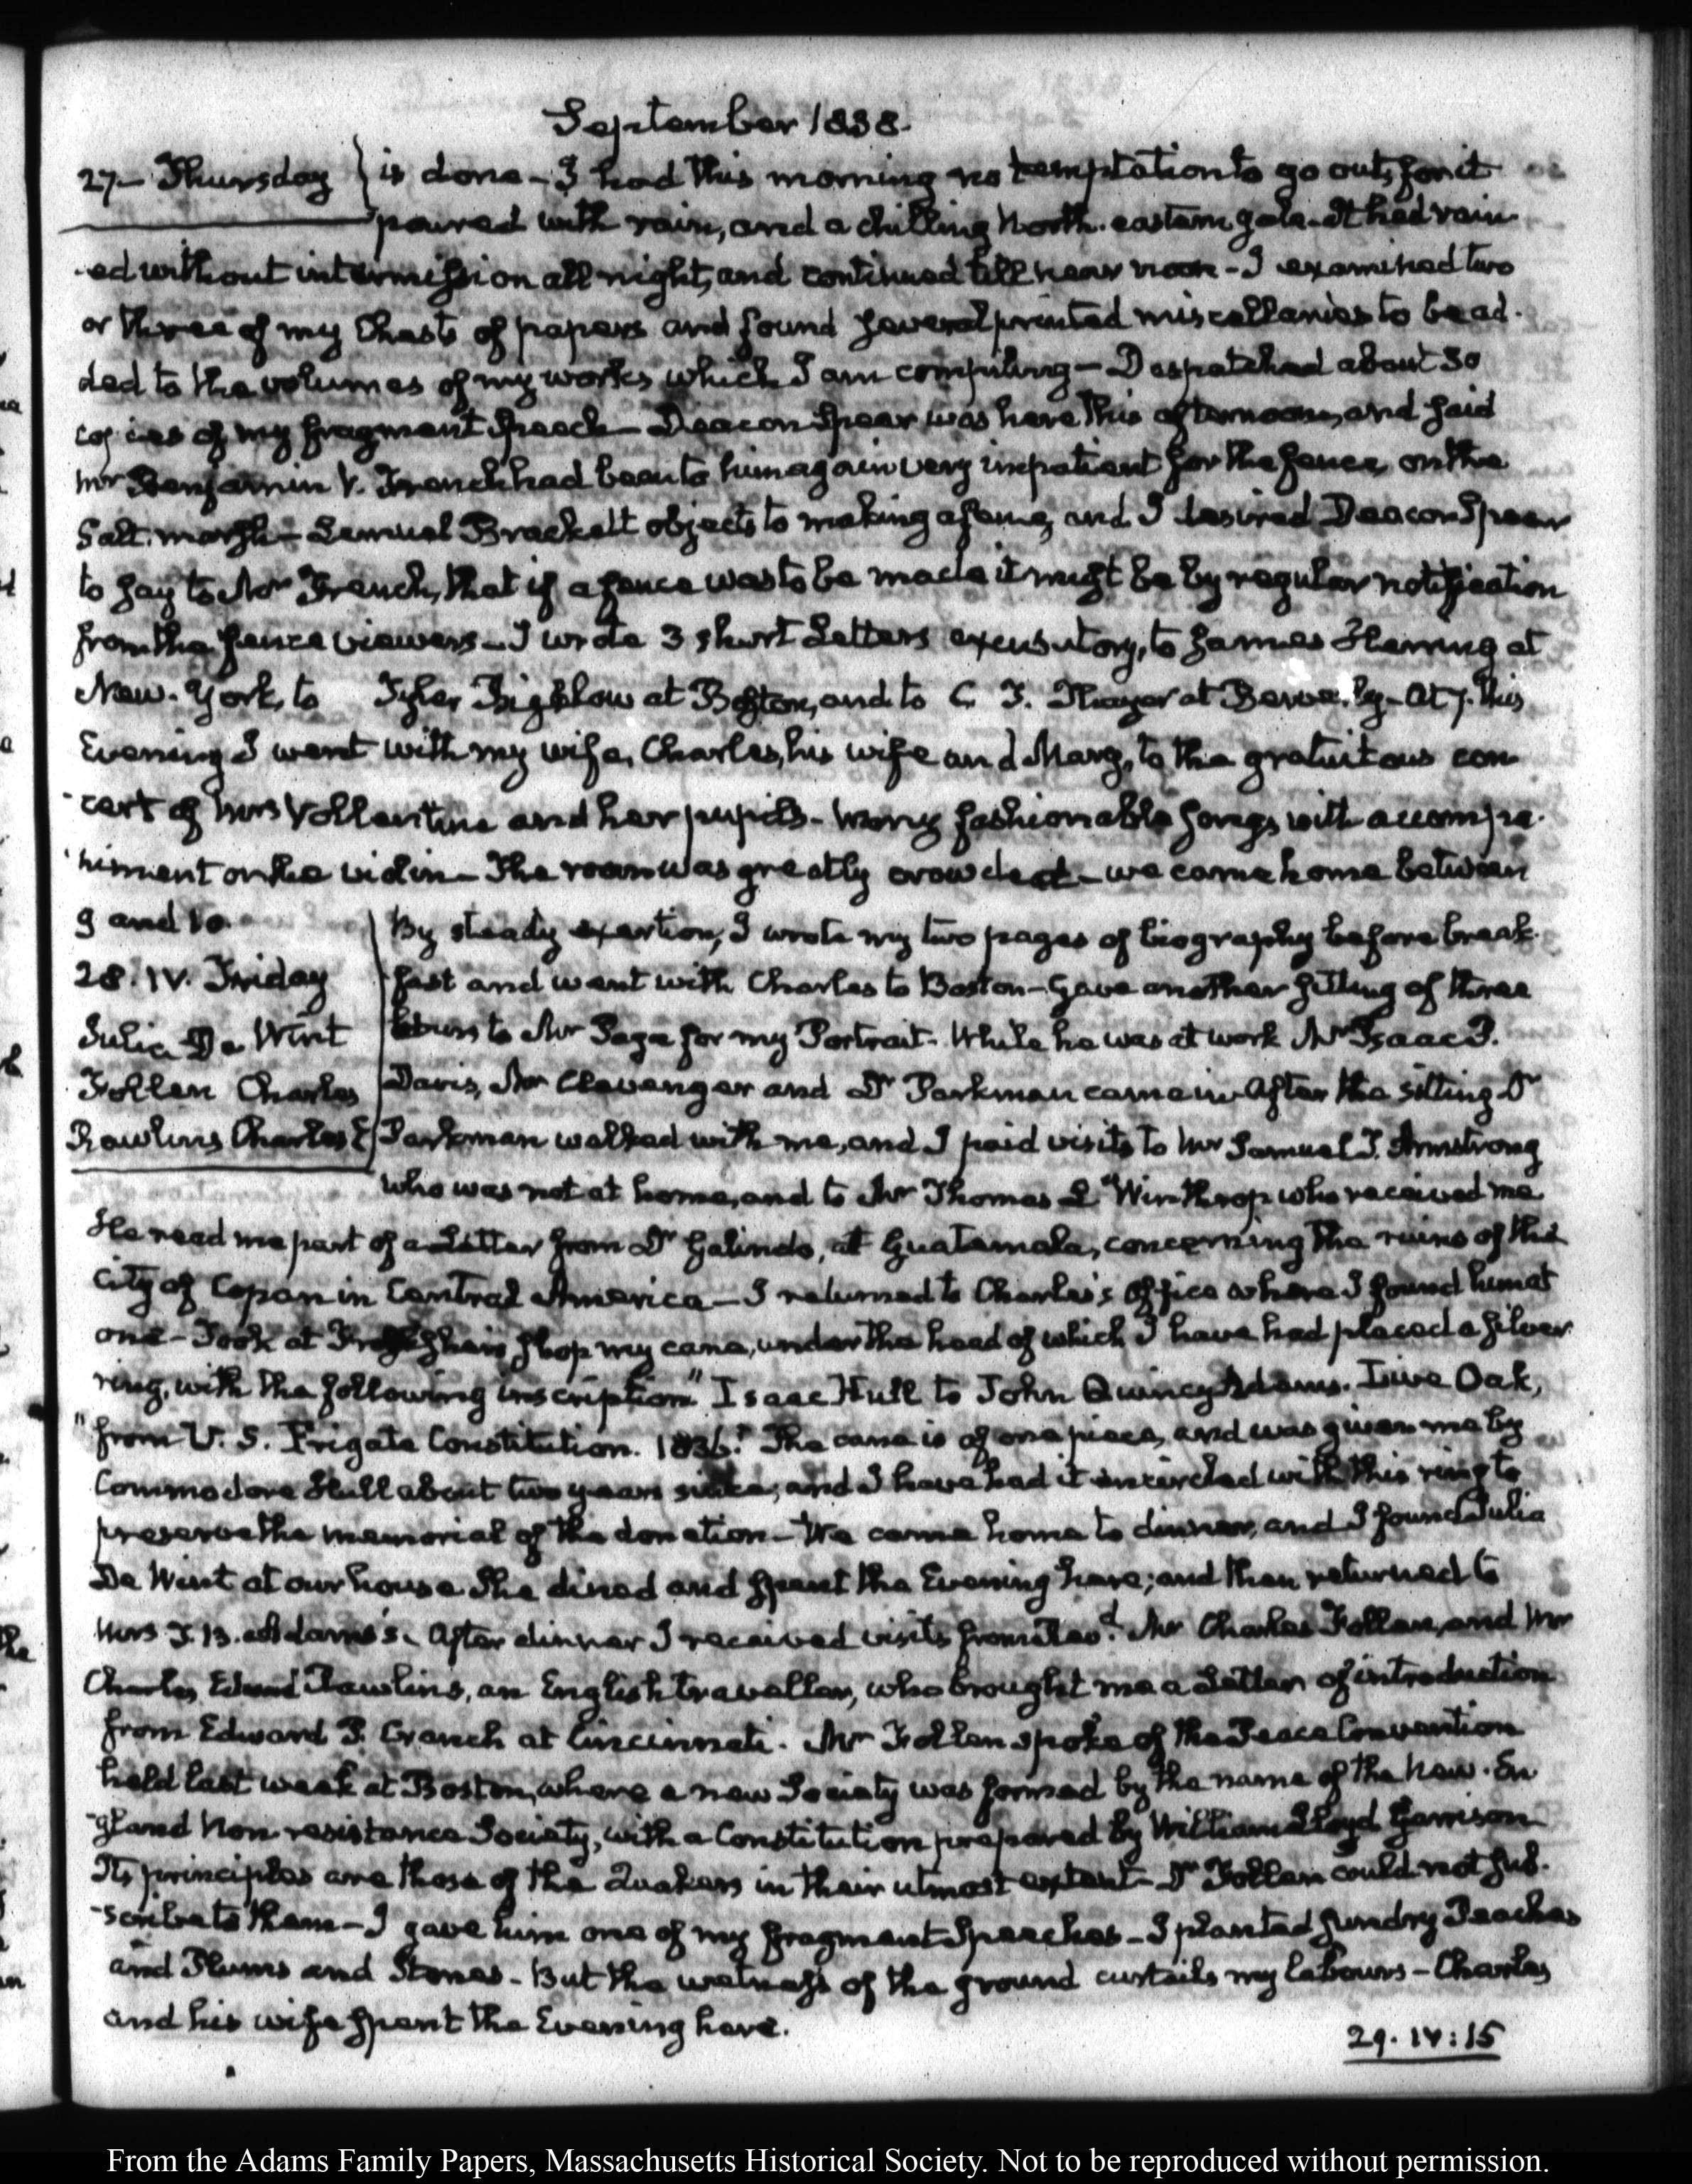 September 1838.
27— Thursday
is done — I had this morning no temptation to go out, for it
poured with rain, and a chilling North-eastern gale. It had rain-
-ed without intermission all night, and continued till near noon — I examined two
or three of my Chests of papers and found several printed miscellanies to be ad-
ded to the volumes of my works which I am compiling — Despatched about 30
copies of my fragment speech — Deacon Spear was here this afternoon, and said
Mr Benjamin V. French had been to him again very impatient for the fence, on the
Salt-marsh — Lemuel Brackett objects to making a fence, and I desired Deacon Spear
to say to Mr French, that if a fence was to be made it might be by regular notification
from the fence viewers — I wrote 3 short Letters excusatory, to James Herring at
New-York, to Tyler Bigelow at Boston, and to C. T. Thayer at Beverly — At 7. this
Evening I went with my wife, Charles, his wife and Mary, to the gratuitous con-
-cert of Mrs Vollentine and her pupils — Many fashionable songs, with accompa-
niment on the violin — The room was greatly crowded — we came home between
9 and 10.
28. IV. Friday
Julia De Wint
Follen Charles
Rawlins Charles E
By steady exertion, I wrote my two pages of biography before break-
-fast and went with Charles to Boston — Gave another sitting of three
hours to Mr Page for my Portrait. While he was at work Mr Isaac P.
Davis, Mr Clevenger and Dr Parkman came in — After the sitting Dr
Parkman walked with me, and I paid visits to Mr Samuel T. Armstrong
who was not at home, and to Mr Thomas L Winthrop who received me
He read me part of a Letter from Dr Galindo, at Guatamala, concerning the ruins of the
City of Copan in Central America — I returned to Charles's Office where I found him at
one — Took at shop my cane, under the head of which I have had placed a silver
ring, with the following inscription "Isaac Hull to John Quincy Adams. Live Oak,
"from U. S. Frigate Constitution. 1836." The cane is of one piece, and was given me by
Commodore Hull about two years since; and I have had it encircled with this ring to
preserve the memorial of the donation — We came home to dinner, and I found Julia
De Wint at our house She dined and spent the Evening here; and then returned to
Mrs T. B. Adams's. After dinner I received visits from Revd. Mr Charles Follen, and Mr
Charles Edward Rawlins, an English traveller, who brought me a Letter of introduction
from Edward P. Cranch at Cincinnati. Mr Follen spoke of the Peace Convention
held last week at Boston, where a new Society was formed by the name of the New-En
-gland Non resistance Society, with a Constitution prepared by William Lloyd Garrison
Its principles are those of the Quakers in their utmost extent — Dr Follen could not sub-
-scribe to them — I gave him one of my fragment Speeches — I planted sundry Peaches
and Plums and Stones — But the wetness of the ground curtails my labours — Charles
and his wife spent the Evening here.
29. IV:15
From the Adams Family Papers, Massachusetts Historical Society. Not to be reproduced without permission.